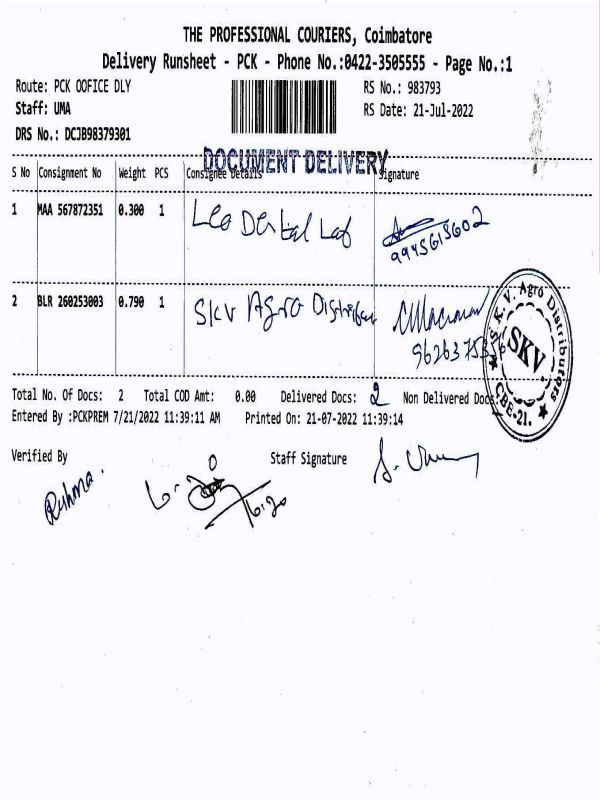 THE PROFESSIONAL COURIERS, Coimbatore
Delivery Runsheet - PCK - Phone No.:0422-3505555 - Page No.:1
Route: PCK OOFICE DLY
RS No.: 983793
Staff: UMA
RS Date: 21-Jul-2022
DRS No.: DCJB98379301
DOCUMENT DELIVERY
S No Consignment No Weight PCS Consignee Details Signature
1 MAA 567872351 0.300 1 Leo Dental Lab
9945613602
2 BLR 260253003 0.790 1 SKV Agro
S.K.V. Agro Distributors
SKV
CBE-21.
Total No. Of Docs: 2 Total COD Amt: 0.00 Delivered Docs: 2 Non Delivered Docs:
Entered By :PCKPREM 7/21/2022 11:39:11 AM Printed On: 21-07-2022 11:39:14
Verified By Staff Signature